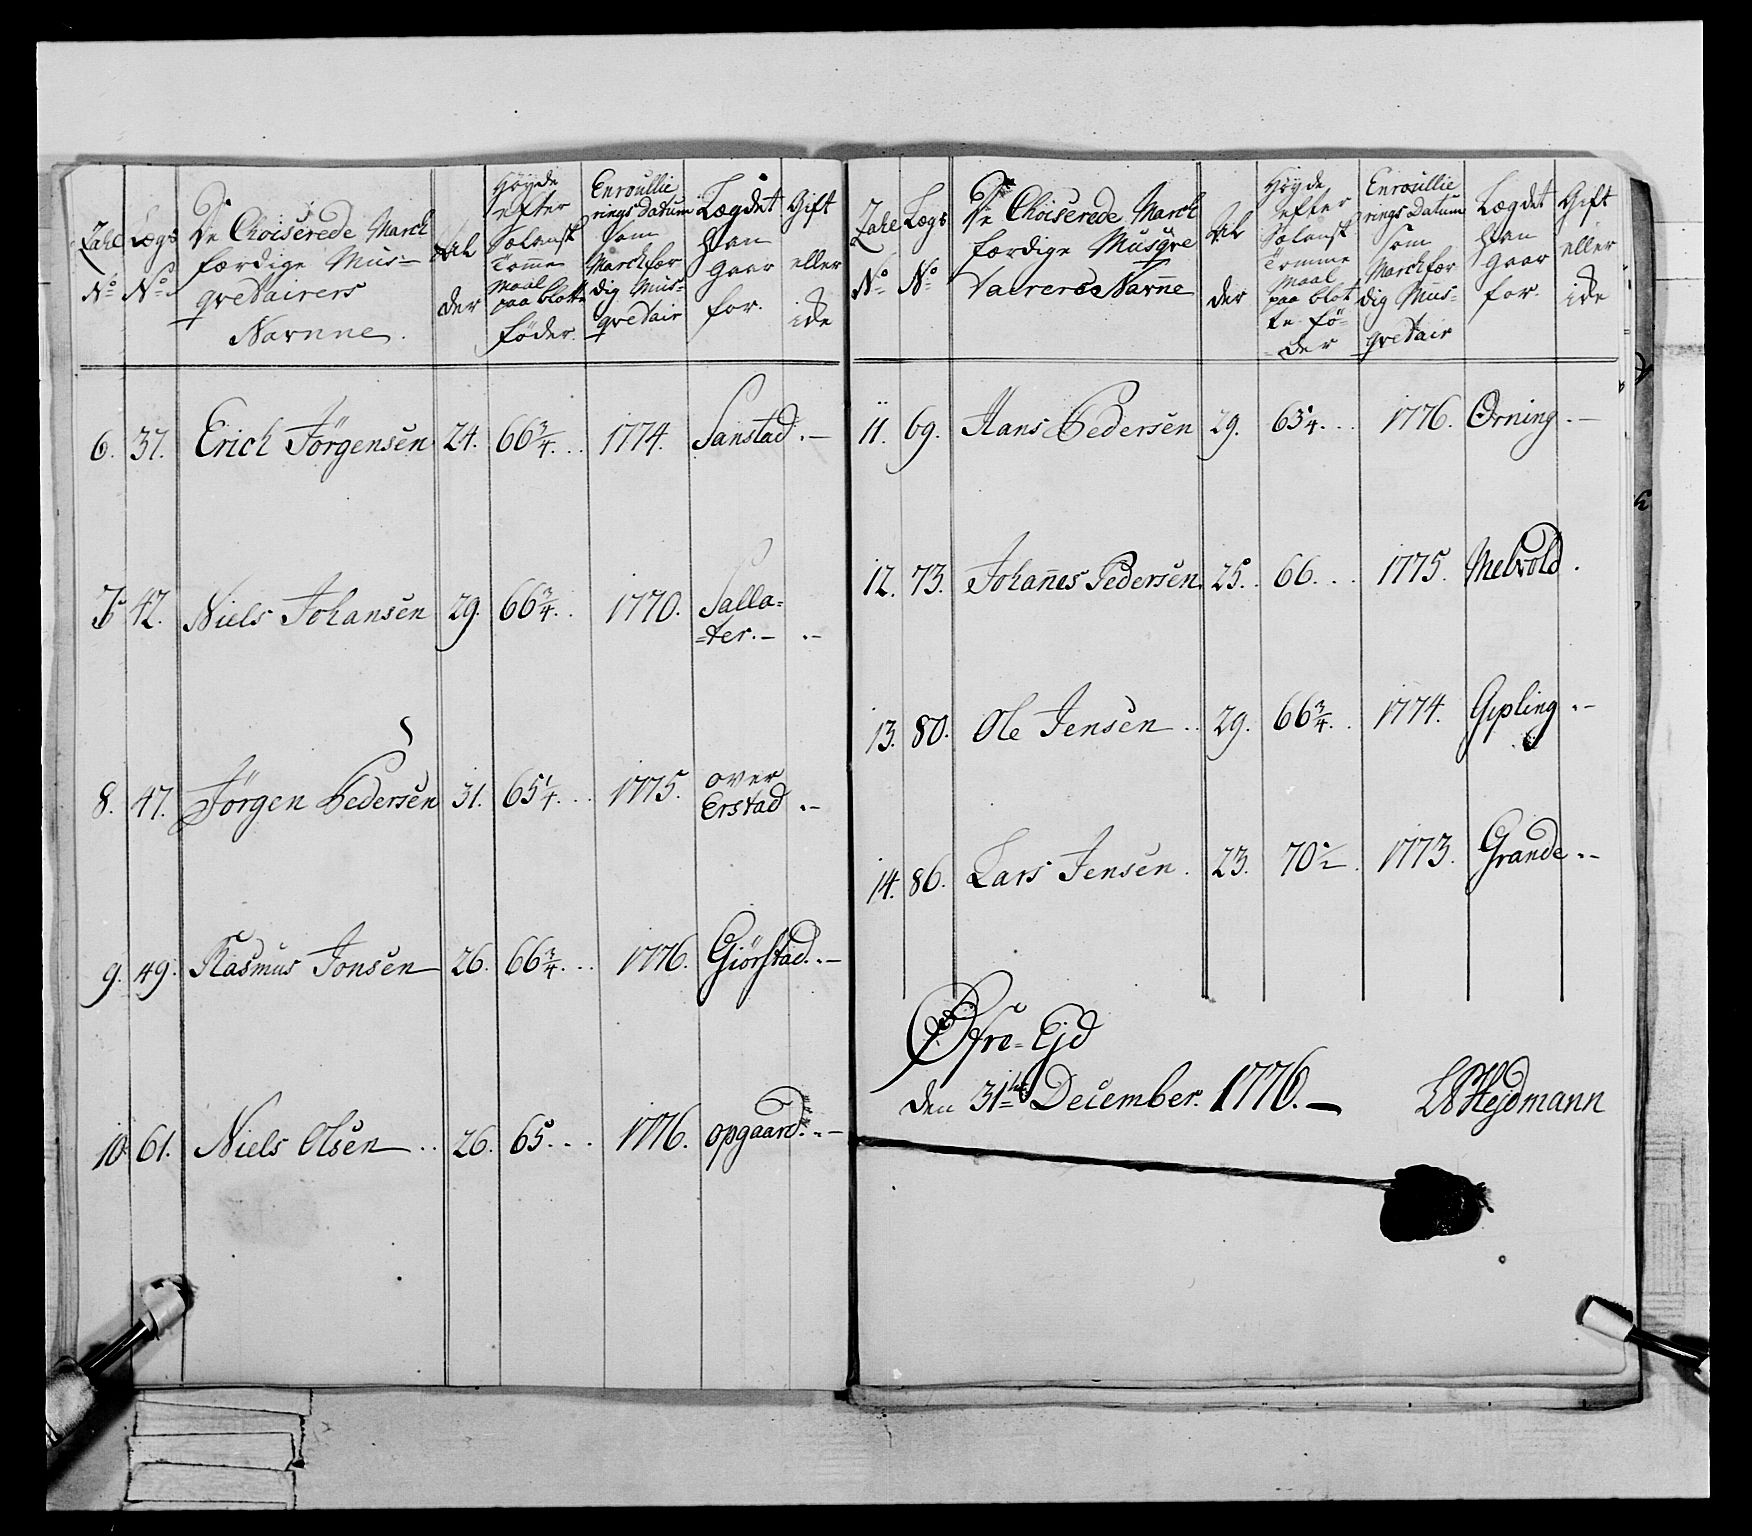 Zahl No
Lægs No
De Choiserede March
færdige Mus=
qvetairers
Navnne.
Al
der
Høyde
efter
Sælansk
Tomme
Maal
paa blotte
føder.
Enroullie
rings Datum
som
Marchfær
dig Mus=
qvetair
Lægdet
han
gaar
for.
Gift
eller
ide
6. 37. Erich Jörgensen 24. 66 3/4. .. 1774. Sanstad. –
7. 42. Niels Johansen 29. 66 3/4. . 1770. Salla=
=ter. – . –
8. 47. Jörgen Pedersen 31. 65 1/4. .. 1775. over
Erstad . –
9. 49. Rasmus Jonsen 26. 66 3/4. .. 1776. Giörstad. . –
10. 61. Niels Olsen .. 26. 65. .. 1776. opgaard. . –
Zahl No
Lægs No
De Choiserede March
færdige Musqve
taireres Navnne
Al
der
Høyde
efter
Sælansk
Tomme
Maal
paa blot
te fø=
der
Enroullie
rings Datum
som
Marchfær
dig Mus=
qvetair
Lægdet
han
gaar
for.
Gift
eller
ide
11. 69. Hans Pedersen 29. 65 1/4. .. 1776. Örning . –
12. 73. Johannes Pedersen 25. 66. .. 1775. Melvold .
13. 80. Ole Jensen .. 29. 66 3/4. . 1774. Gipling . –
14. 86. Lars Jensen . 23. 70 1/2 . 1773. Grande . –
Øfre=Ejd
den 31te December. 1776. – Heydmann